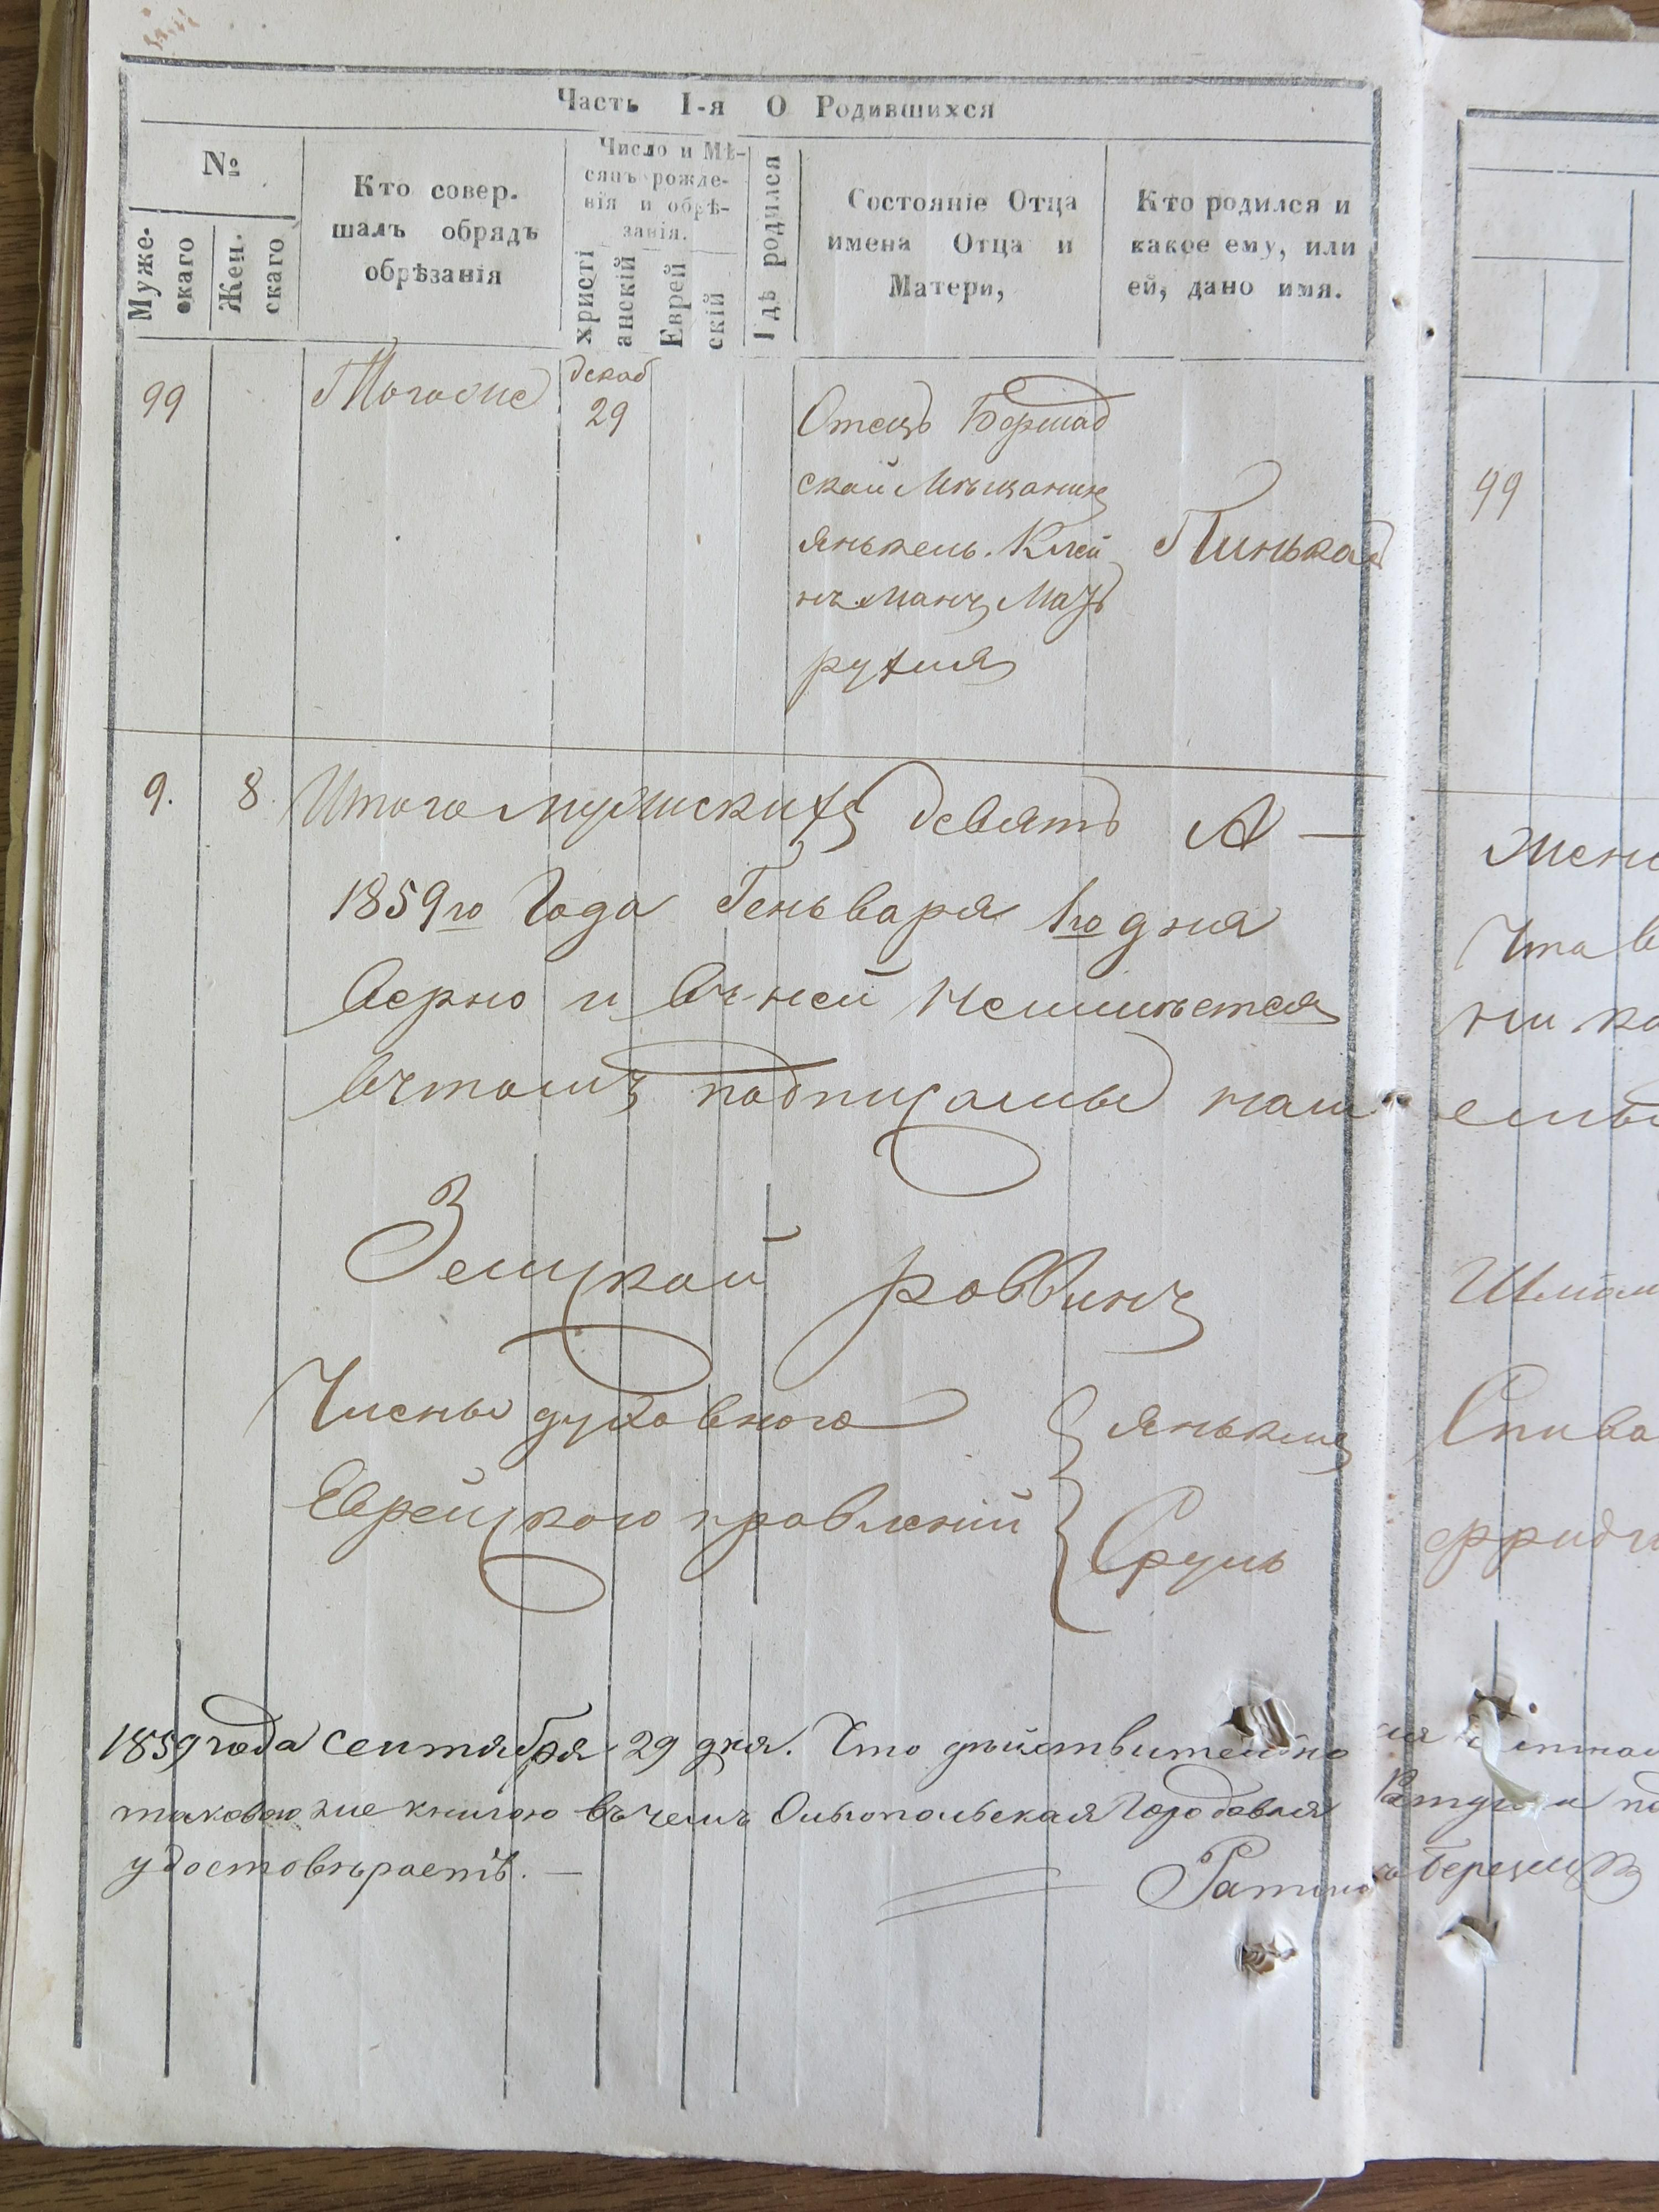 Часть I-я О Родившихся
№
Муже-
скаго
Жен.
скаго
Кто совер.
шалъ обрядъ
обрѣзанія
Число и Мѣ-
сяцъ рожде-
нія и обрѣ-
занія.
христі
анскій
Еврей
скій
Гдѣ родился
Состояніе Отца
имена Отца и
Матери,
Кто родился и
какое ему, или
ей, дано имя.
99
Тогоже
декаб
29
Отецъ Бершад
ской Мѣщанинъ
Янькель Клей
нъманъ Мать
рухля
Пинькас
99
9. 8 Итого мужскихъ девять А —
1859го Года Геньваря 1го дня
верно и въ ней
въ томъ подписамы наш
раввинъ
Члены духовного
Еврейского правлений
Янькель
Сруль
1859 года сентября 29 дня. Что дѣйствительно
таковою же книгою въ чемъ Ольгопольская Городовая
удостовѣраетъ. —
Жен
Что в
ни ка
Шмил
Спива